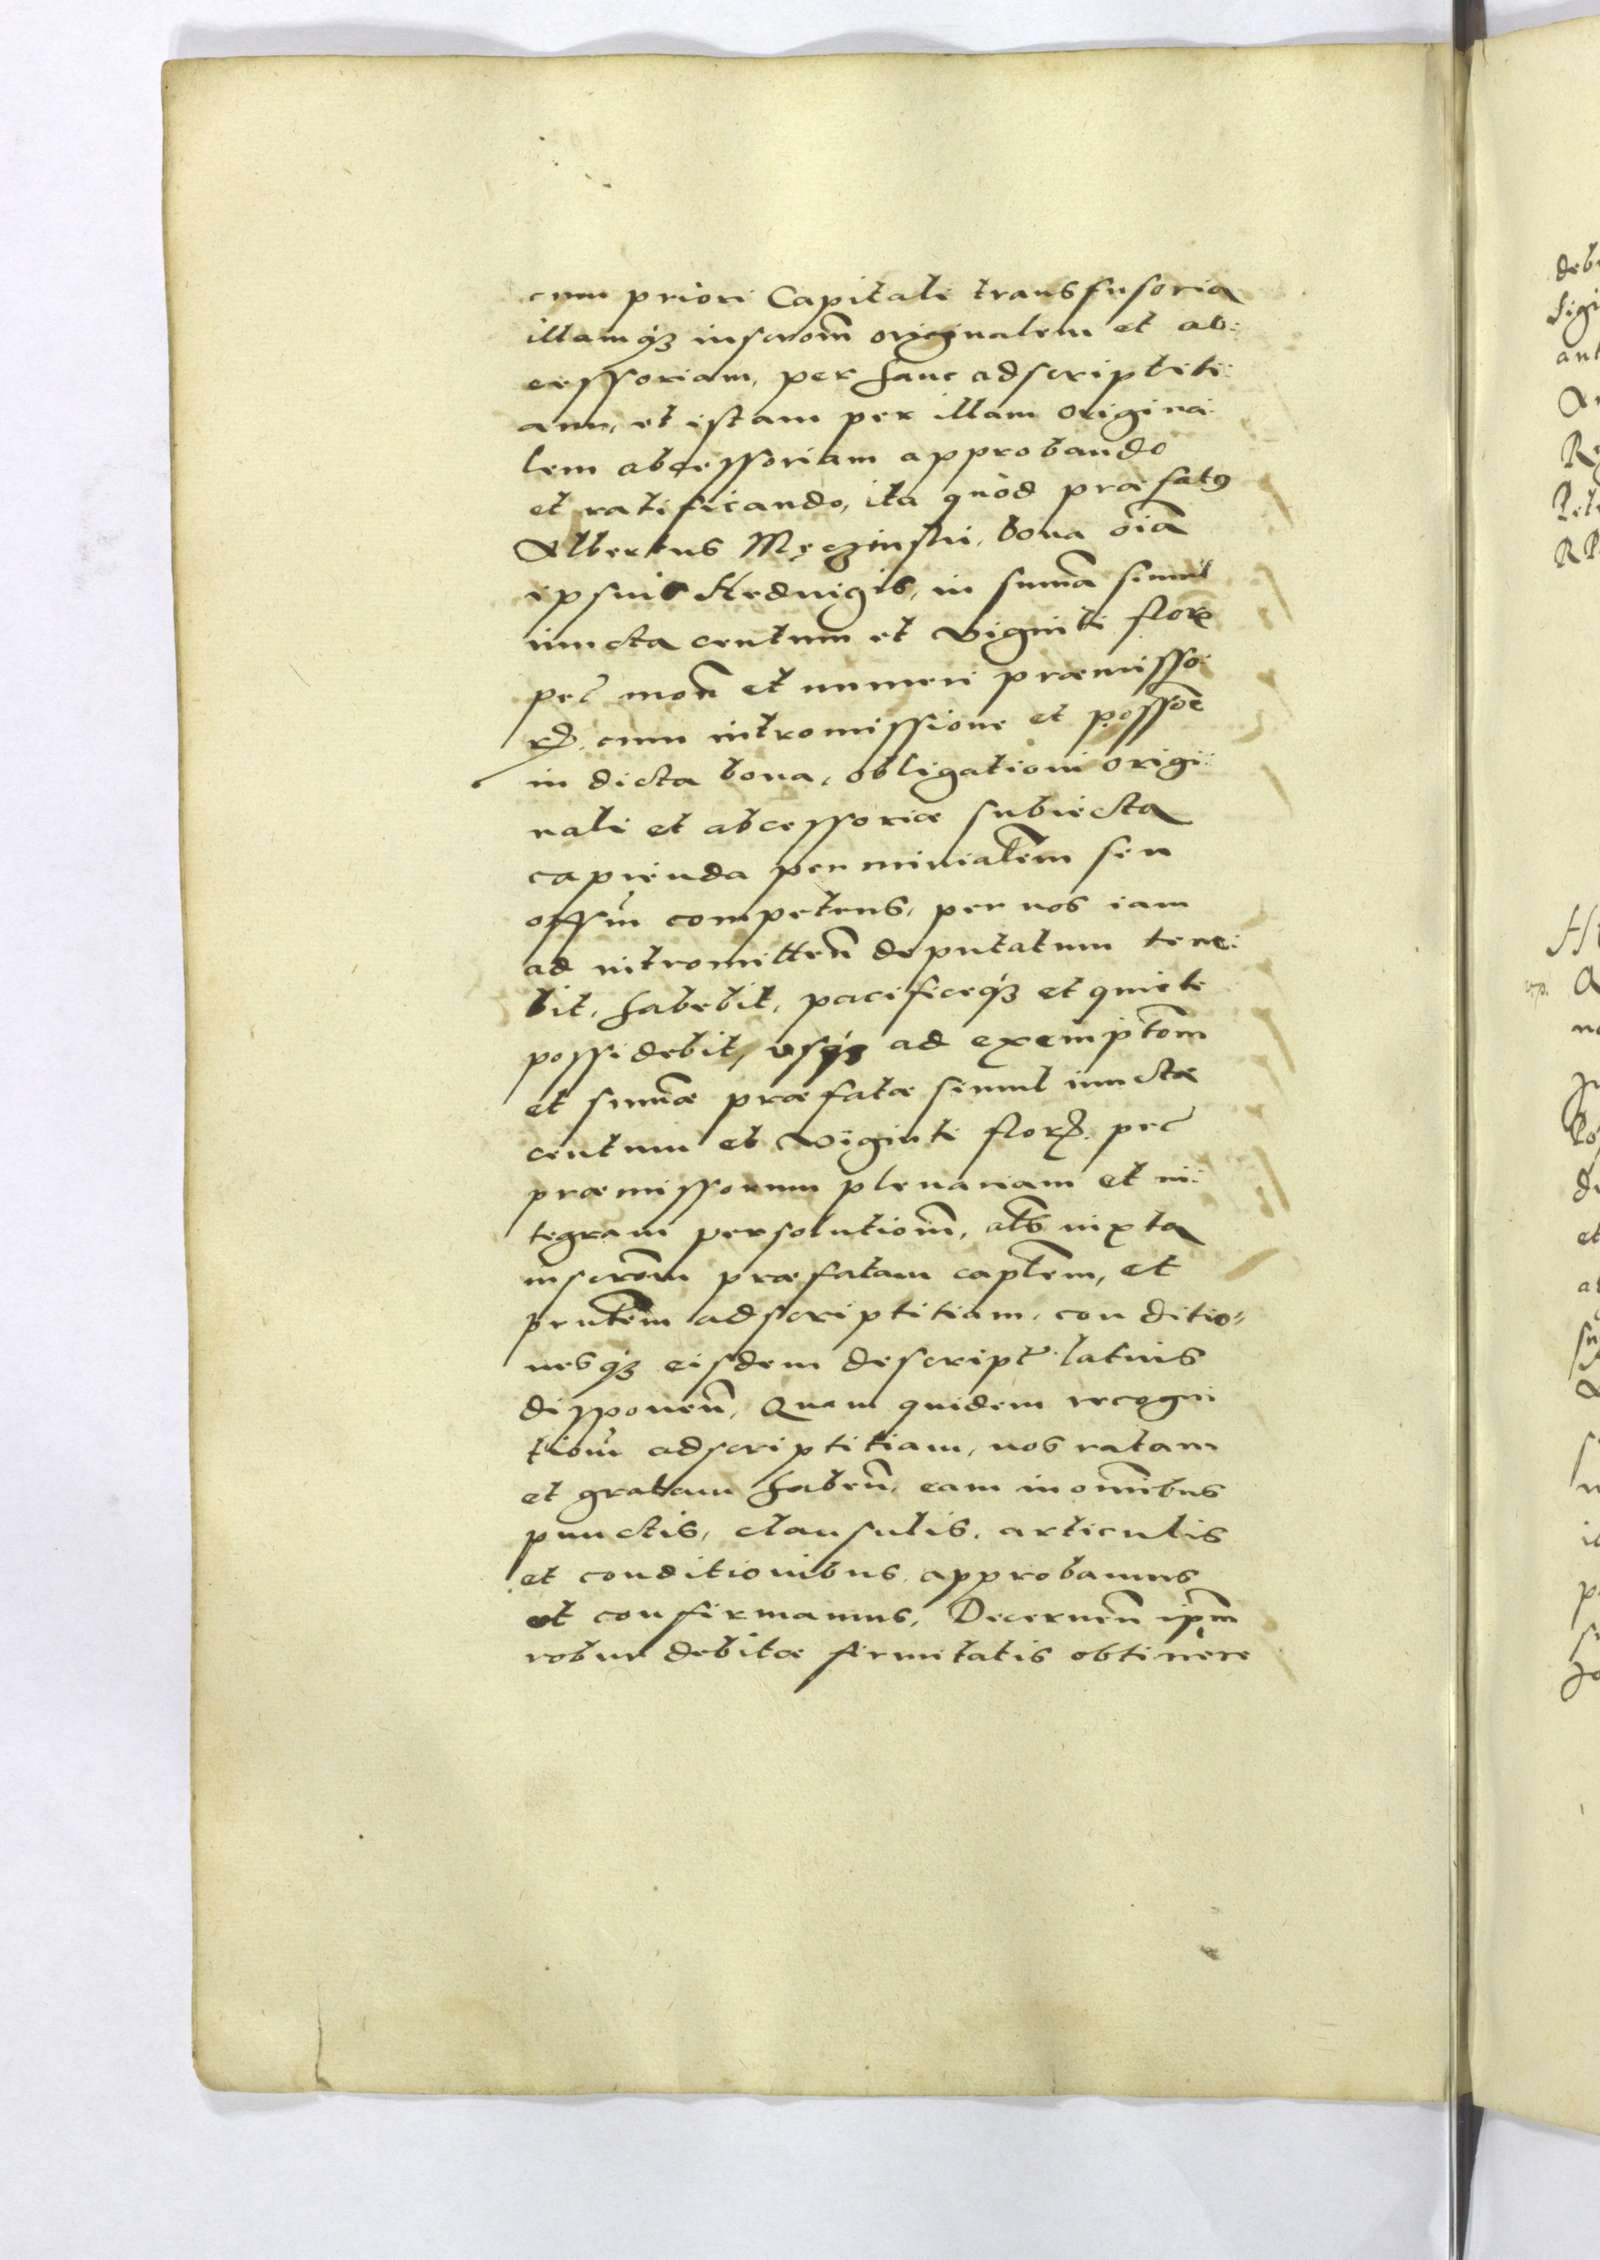 cum priori Capitali transfusoria
illamq3 inscrõm originalem et ab:
cessoriam, per hanc adscriptiti:
am, et istam per illam origina:
lem abcessoriam approbando
et ratificando, ita quòd præfatꝰ
Albertus Męczinski, bona oĩa
ipsius Hedvigis, in summã simul
iuncta centum et viginti flor̃
pec̃ moñ et numeri præmisso:
rꝝ, cum intromissione et possõe
in dicta bona, obligationi origi:
nali et abcessoriæ subiecta
capienda per ministm̃ seu
offim̃ competens, per nos iam
ad intromitteñ deputatum tene:
bit, habebit, pacificeq3 et quiete
possidebit, usq3 ad exemptõm
et summæ præfatæ simul iunctæ
centum et viginti florꝝ. pec̃
præmissorum plenariam et in:
tegram persolutiom̃, als̃ iuxta
inscrõm præfatam captlem̃, et
pñtem̃ adscriptitiam, conditio=
nesq3 eisdem descript̃ latius
disponeñ, Quam quidem recogni
tiom̃ adscriptitiam, nos ratam
et gratam habeñ, eam in omñibus
punctis, clausulis, articulis
et conditionibus, approbamus
et confirmamus, Decerneñ ipm̃
robur debitæ firmitatis obtinere